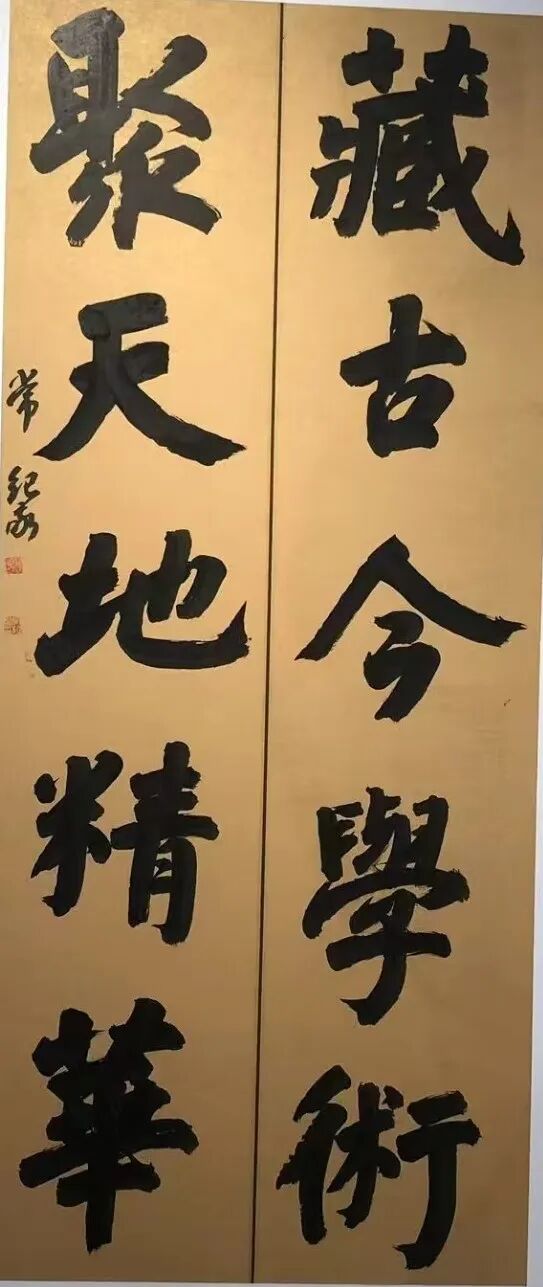 藏古今學術
聚天地精華
常紀